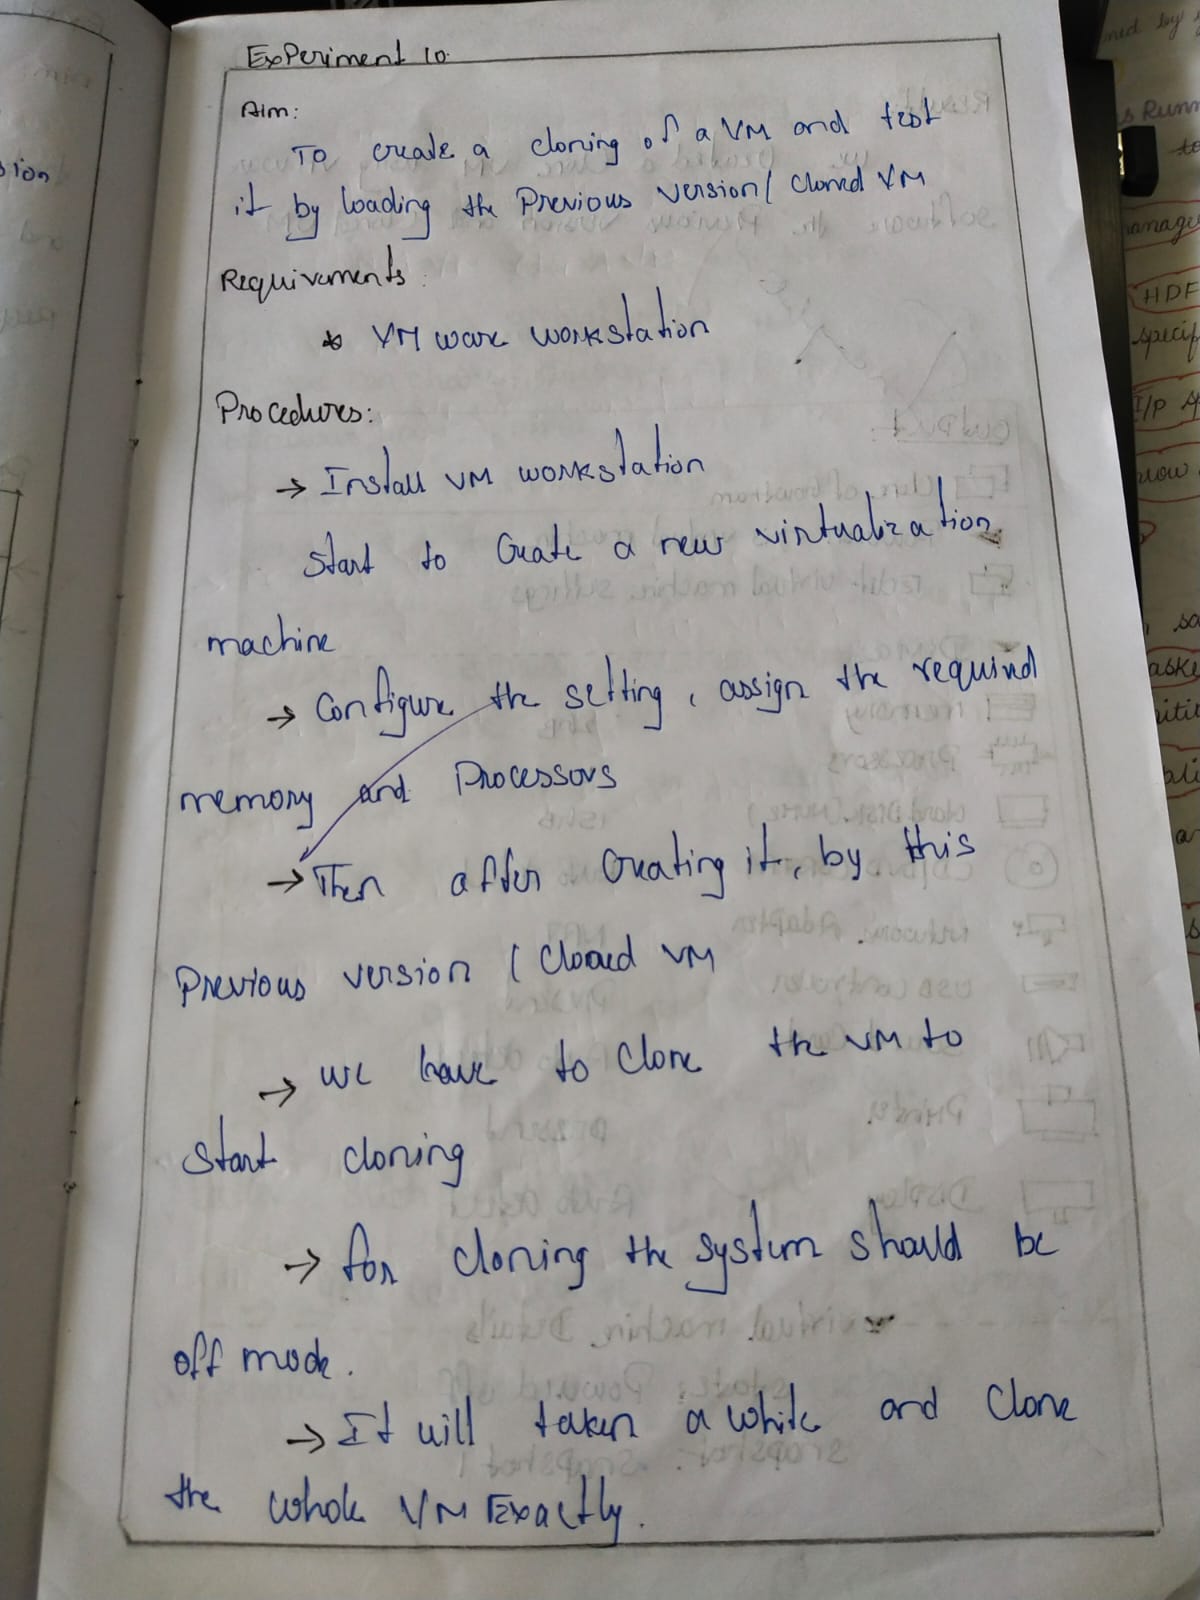 Experiment 10.
Aim:
To create a cloning of a VM and test
it by loading the Previous version/ cloned VM
Requirements:
* VM ware workstation
Procedures:
→ Install VM workstation
Start to Create a new virtualization
machine
→ Configure the setting, assign the required
memory and Processors
→ Then after Creating it, by this
Previous version / Cloned VM
→ we have to Clone the VM to
Start cloning
→ for cloning the system should be
off mode.
→ It will taken a while and Clone
the whole VM Exactly.
sion
ned by
s Runn
to
manage
HDF
specif
I/P
now
so
aske
itic